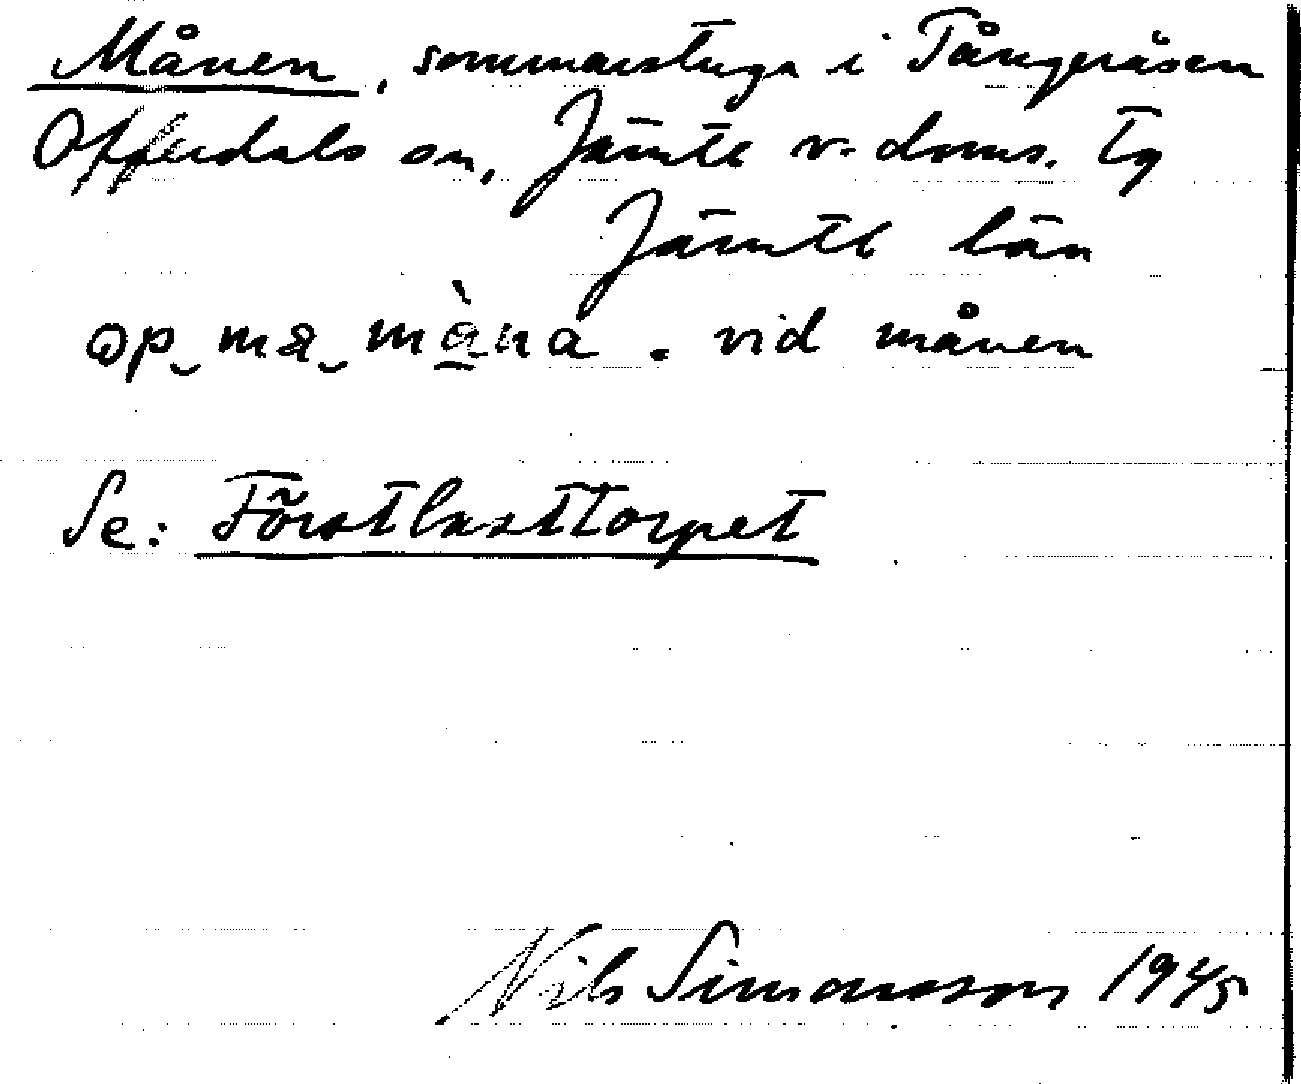 Månen, sommarstuga i Tångeråsen
Offerdals sn, Jämtl v. doms. tg
Jämtl län
vid månen
Se: Förstlasttorpet
Nils Simonsson 1945